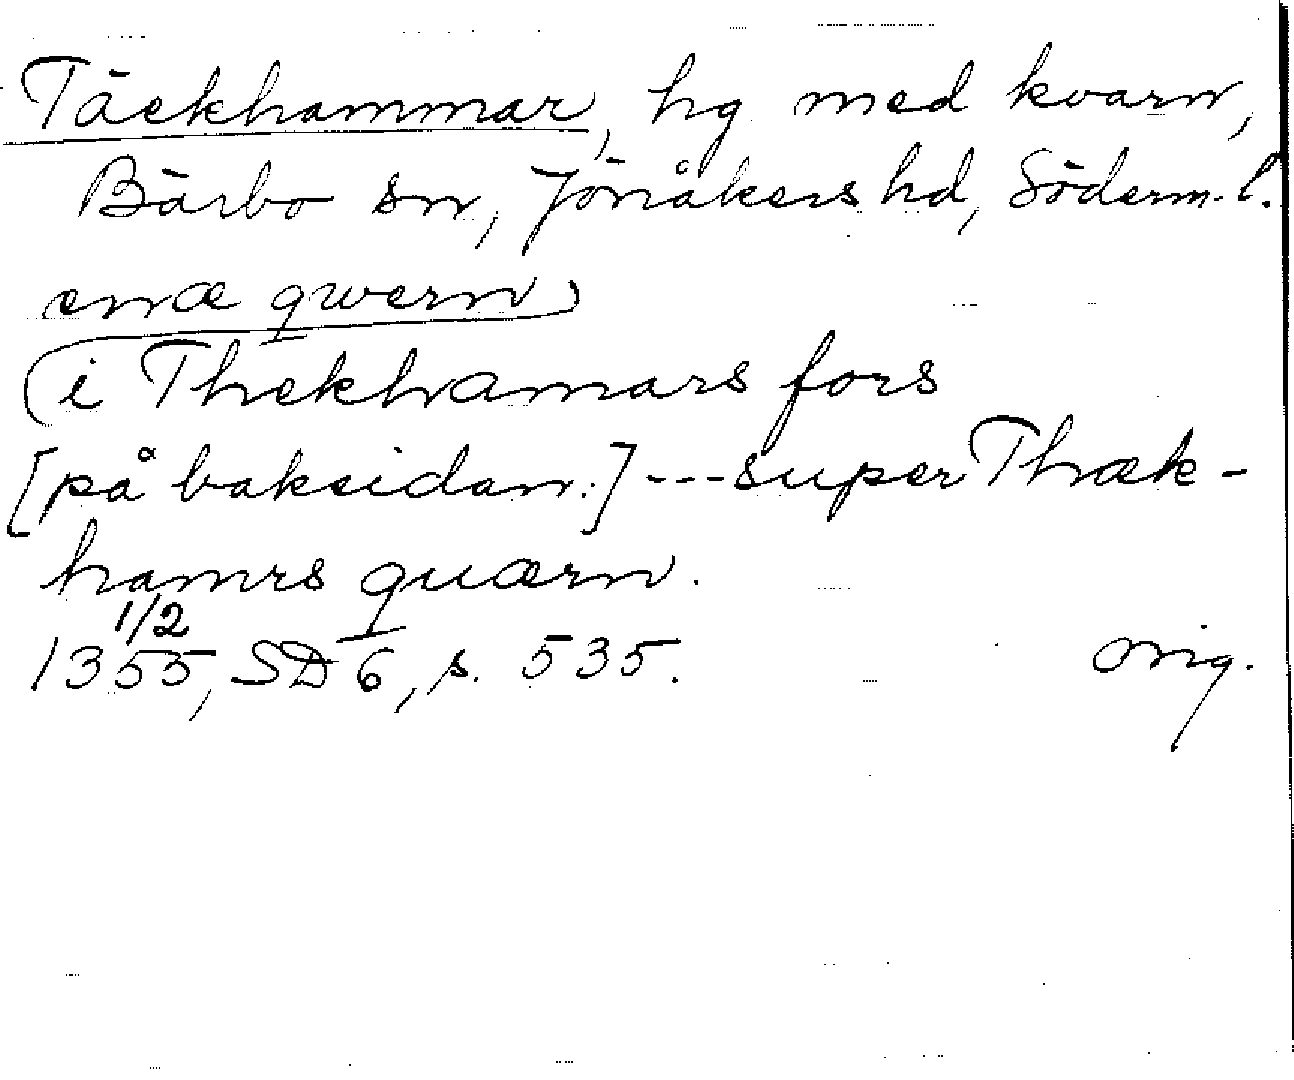 Täckhammar, hg med kvarn,
Bärbo sn, Jönåkers hd, Söderm. l.
enæ qwern
i Thekhamars fors
[på baksidan:] --- super Thæk-
hamrs quærn.
1/2
1355, SD 6, s. 535. orig.